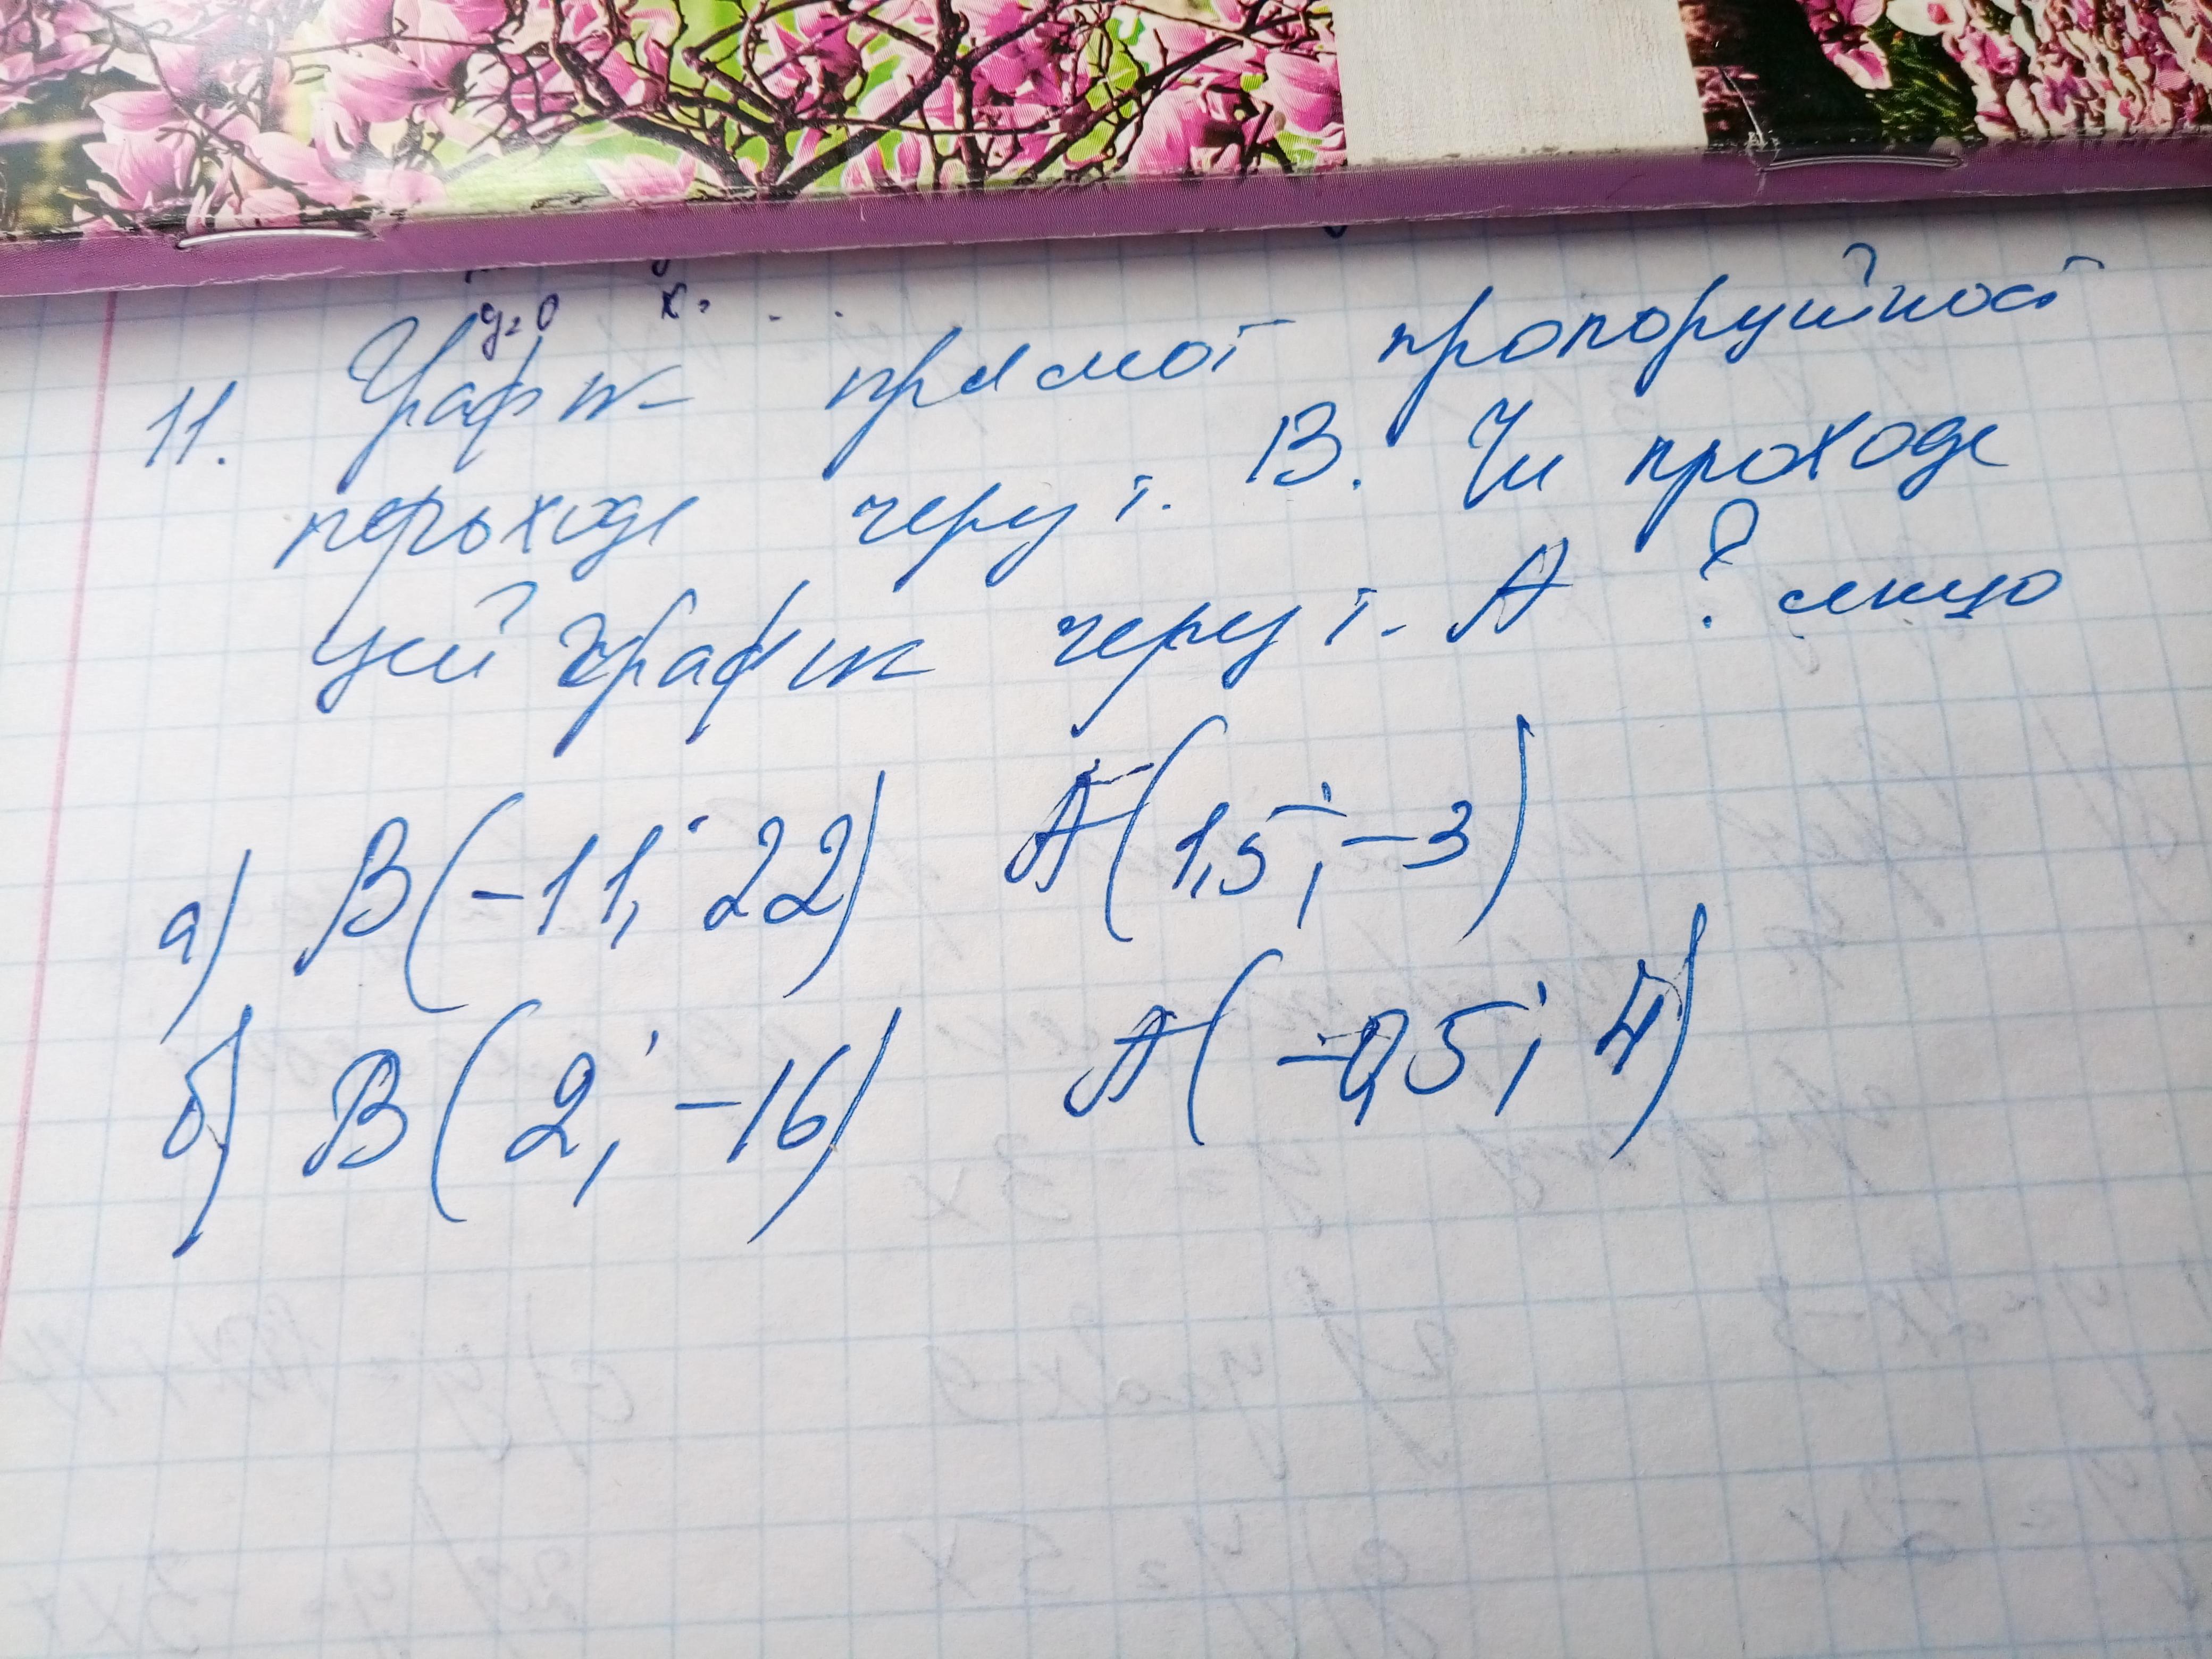 y=0 x=
11. Графік прямої пропорційності
проходе через т. В. Чи проходе
цей графік через т. А ? якщо
а) В(-11; 22) А(1,5; -3)
б) В(2; -16) А(-0,5; 4)